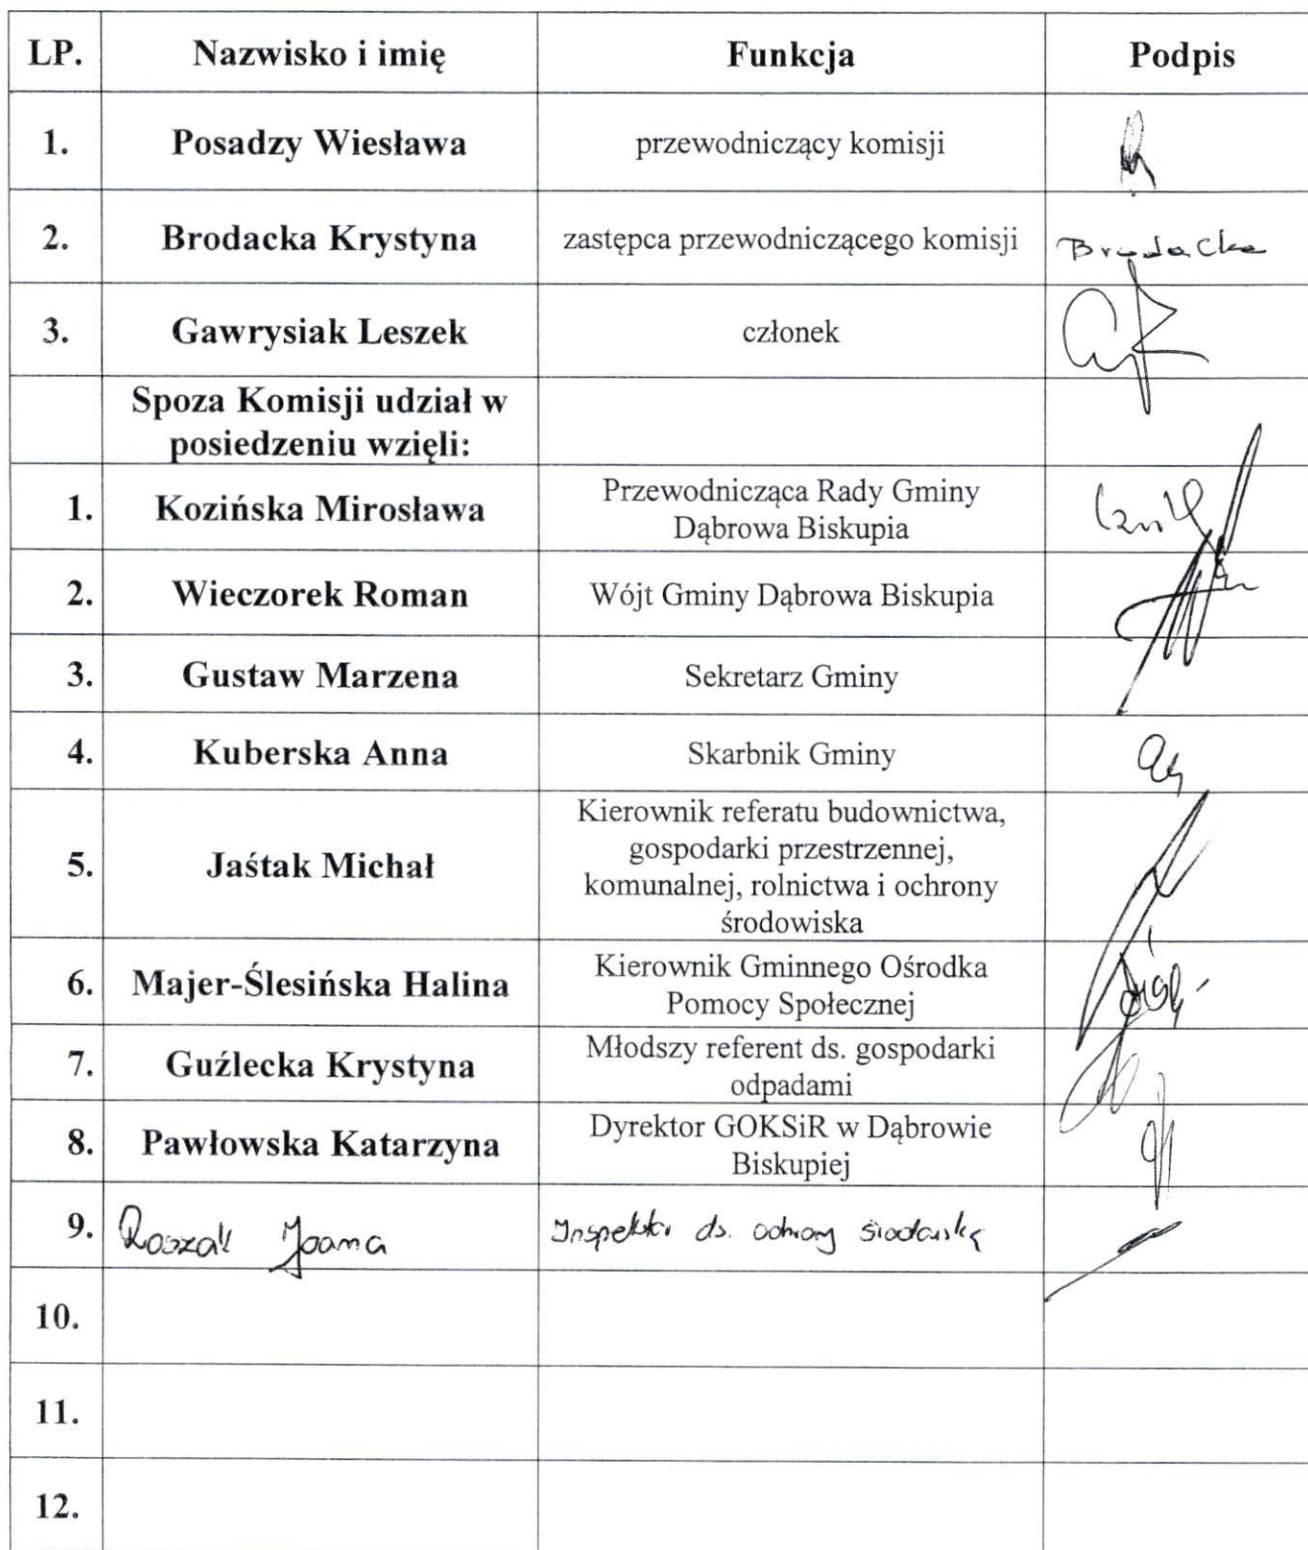 LP. Nazwisko i imię Funkcja Podpis
1. Posadzy Wiesława przewodniczący komisji
2. Brodacka Krystyna zastępca przewodniczącego komisji Brodacka
3. Gawrysiak Leszek członek
Spoza Komisji udział w
posiedzeniu wzięli:
1. Kozińska Mirosława Przewodnicząca Rady Gminy
Dąbrowa Biskupia
2. Wieczorek Roman Wójt Gminy Dąbrowa Biskupia
3. Gustaw Marzena Sekretarz Gminy
4. Kuberska Anna Skarbnik Gminy
Kierownik referatu budownictwa,
gospodarki przestrzennej,
5. Jaśtak Michał
komunalnej, rolnictwa i ochrony
środowiska
6. Majer-Ślesińska Halina Kierownik Gminnego Ośrodka
Pomocy Społecznej
7. Guźlecka Krystyna Młodszy referent ds. gospodarki
odpadami
8. Pawłowska Katarzyna Dyrektor GOKSiR w Dąbrowie
Biskupiej
9. Roszak Joanna Inspektor ds. ochrony środowiska
10.
11.
12.